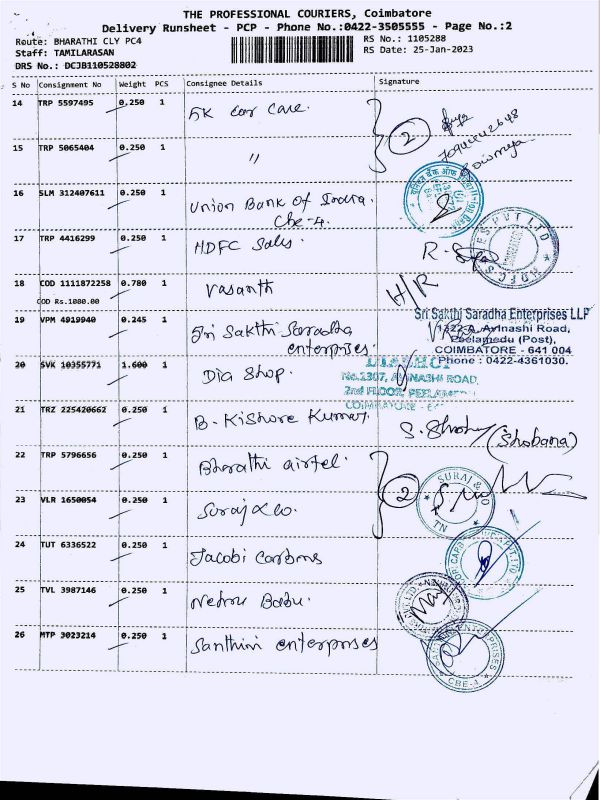 THE PROFESSIONAL COURIERS, Coimbatore
Delivery Runsheet - PCP - Phone No.:0422-3505555 - Page No.:2
Route: BHARATHI CLY PC4
Staff: TAMILARASAN
DRS No.: DCJB110528802
RS No.: 1105288
RS Date: 25-Jan-2023
S No Consignment No Weight PCS Consignee Details Signature
14 TRP 5597495 0.250 1 SK car care.
2
15 TRP 5065404 0.250 1 "
Sowmya
16 SLM 312407611 0.250 1 Union Bank of India.
Cbe-4.
17 TRP 4416299 0.250 1 HDFC Sales.
18 COD 1111872258 0.780 1 Vasanth H/R
COD Rs.1080.00
19 VPM 4919940 0.245 1 Sri Sakthi Saradha
enterprises.
Sri Sakthi Saradha Enterprises LLP
1322-A, Avinashi Road,
Peelamedu (Post),
COIMBATORE - 641 004
Phone : 0422-4361030.
20 SVK 10355771 1.600 1 Dia Shop.
No.1307, AVINASHI ROAD,
2nd FLOOR, PEELAM
COIMBATORE - 6
21 TRZ 225420662 0.250 1 B. Kishore Kumar
(Shobana)
22 TRP 5796656 0.250 1 Bharathi airtel.
2
23 VLR 1650054 0.250 1 Suraj & co.
SURAJ & CO
TN
24 TUT 6336522 0.250 1 Jacobi Carbons
25 TVL 3987146 0.250 1 Nehru Babu.
26 MTP 3023214 0.250 1 Santhini enterprises
CBE-4